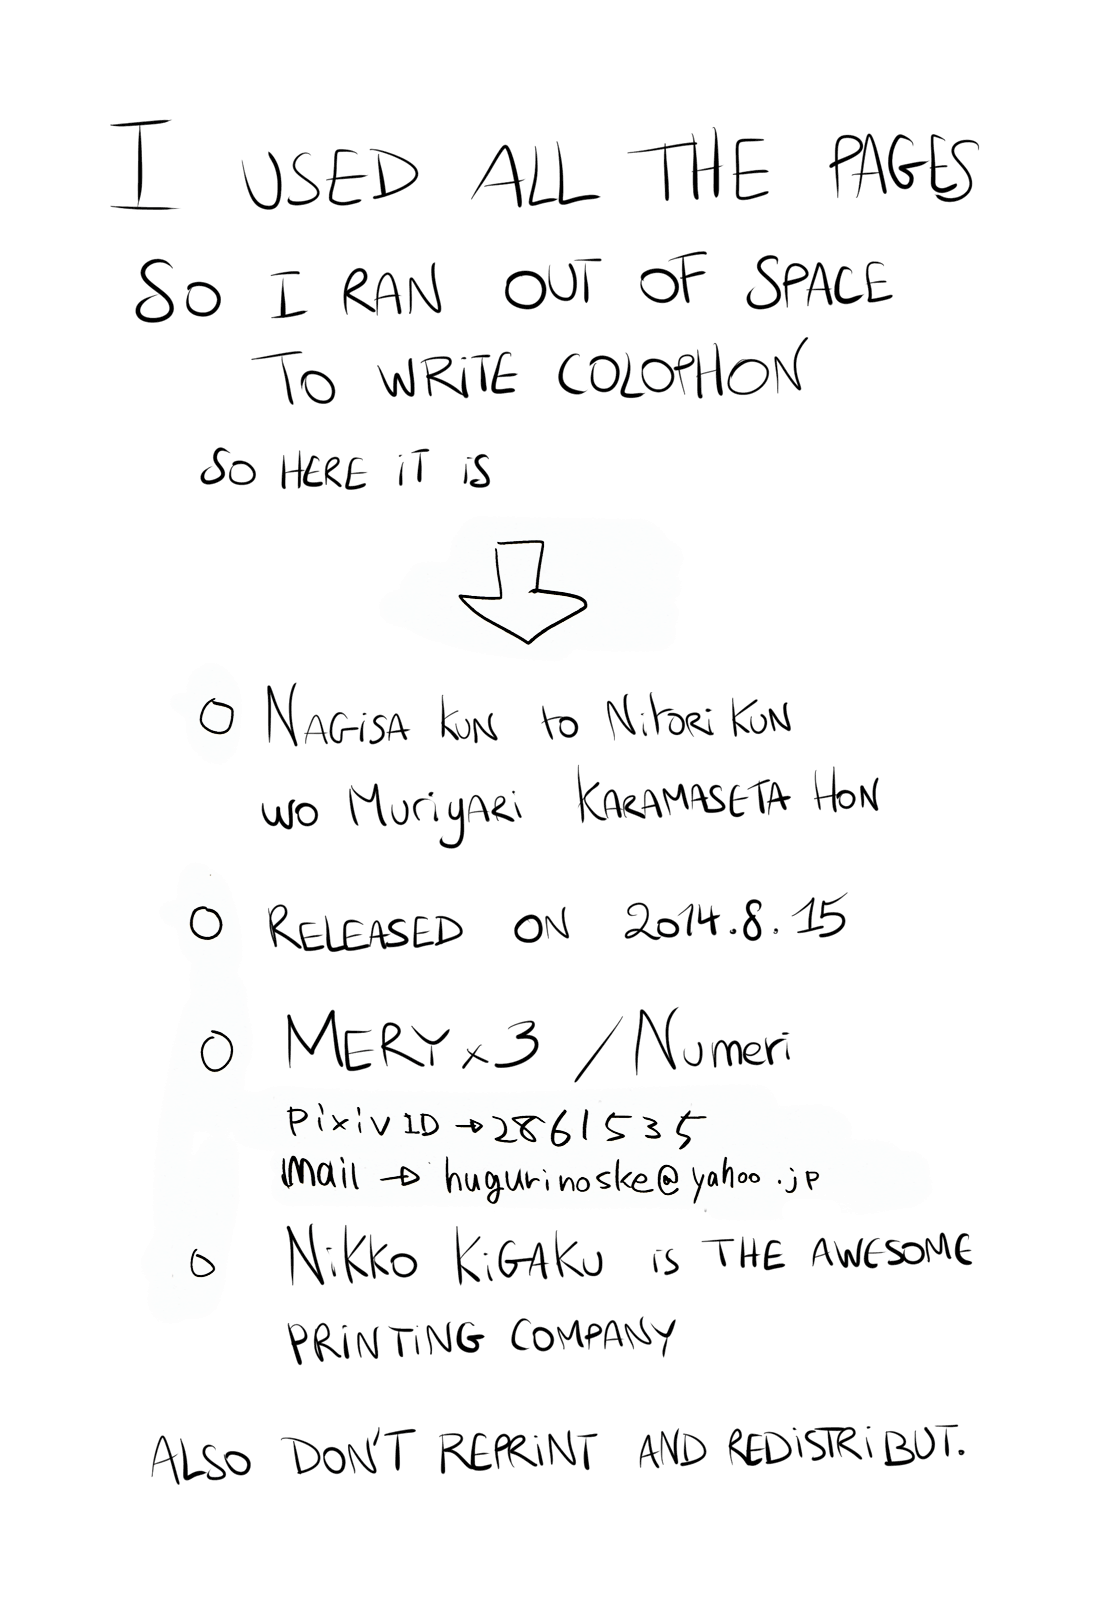 I USED ALL THE PAGES
SO I RAN OUT OF SPACE
TO WRITE COLOPHON
SO HERE IT IS
○ NAGISA KUN to NitoRi KUN
wo MuriyARi KARAMASETA HON
○ RELEASED ON 2014.8.15
○ MERY×3 /Numeri
Pixiv ID→2861535
mail → hugurinoske@yahoo.jp
○ NiKKO KiGAKU is THE AWESOME
PRiNTiNG COMPANY
ALSO DON'T REPRiNT AND REDiSTRiBUT.